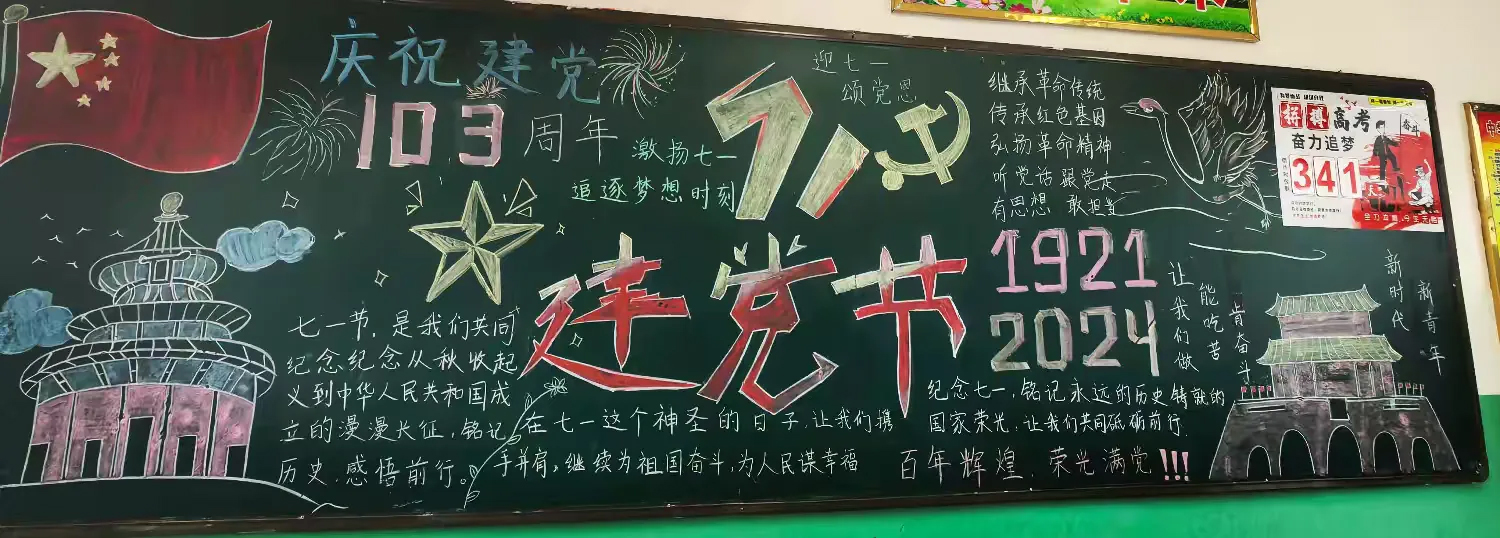 庆祝建党
103周年
激扬七一
追逐梦想时刻
七一
迎七一
颂党恩
建党节
继承革命传统
传承红色基因
弘扬革命精神
听党话 跟党走
有思想 敢担当
1921
2024
七一节,是我们共同
纪念纪念从秋收起
义到中华人民共和国成
立的漫漫长征,铭记
历史,感悟前行。
在七一这个神圣的日子,让我们携
手并肩,继续为祖国奋斗,为人民谋幸福
纪念七一,铭记永远的历史铸就的
国家荣光,让我们共同砥砺前行.
百年辉煌,荣光满党!!!
让我们做
能吃苦
肯奋斗
新时代
新青年
拼搏高考
奋斗
奋力追梦
341